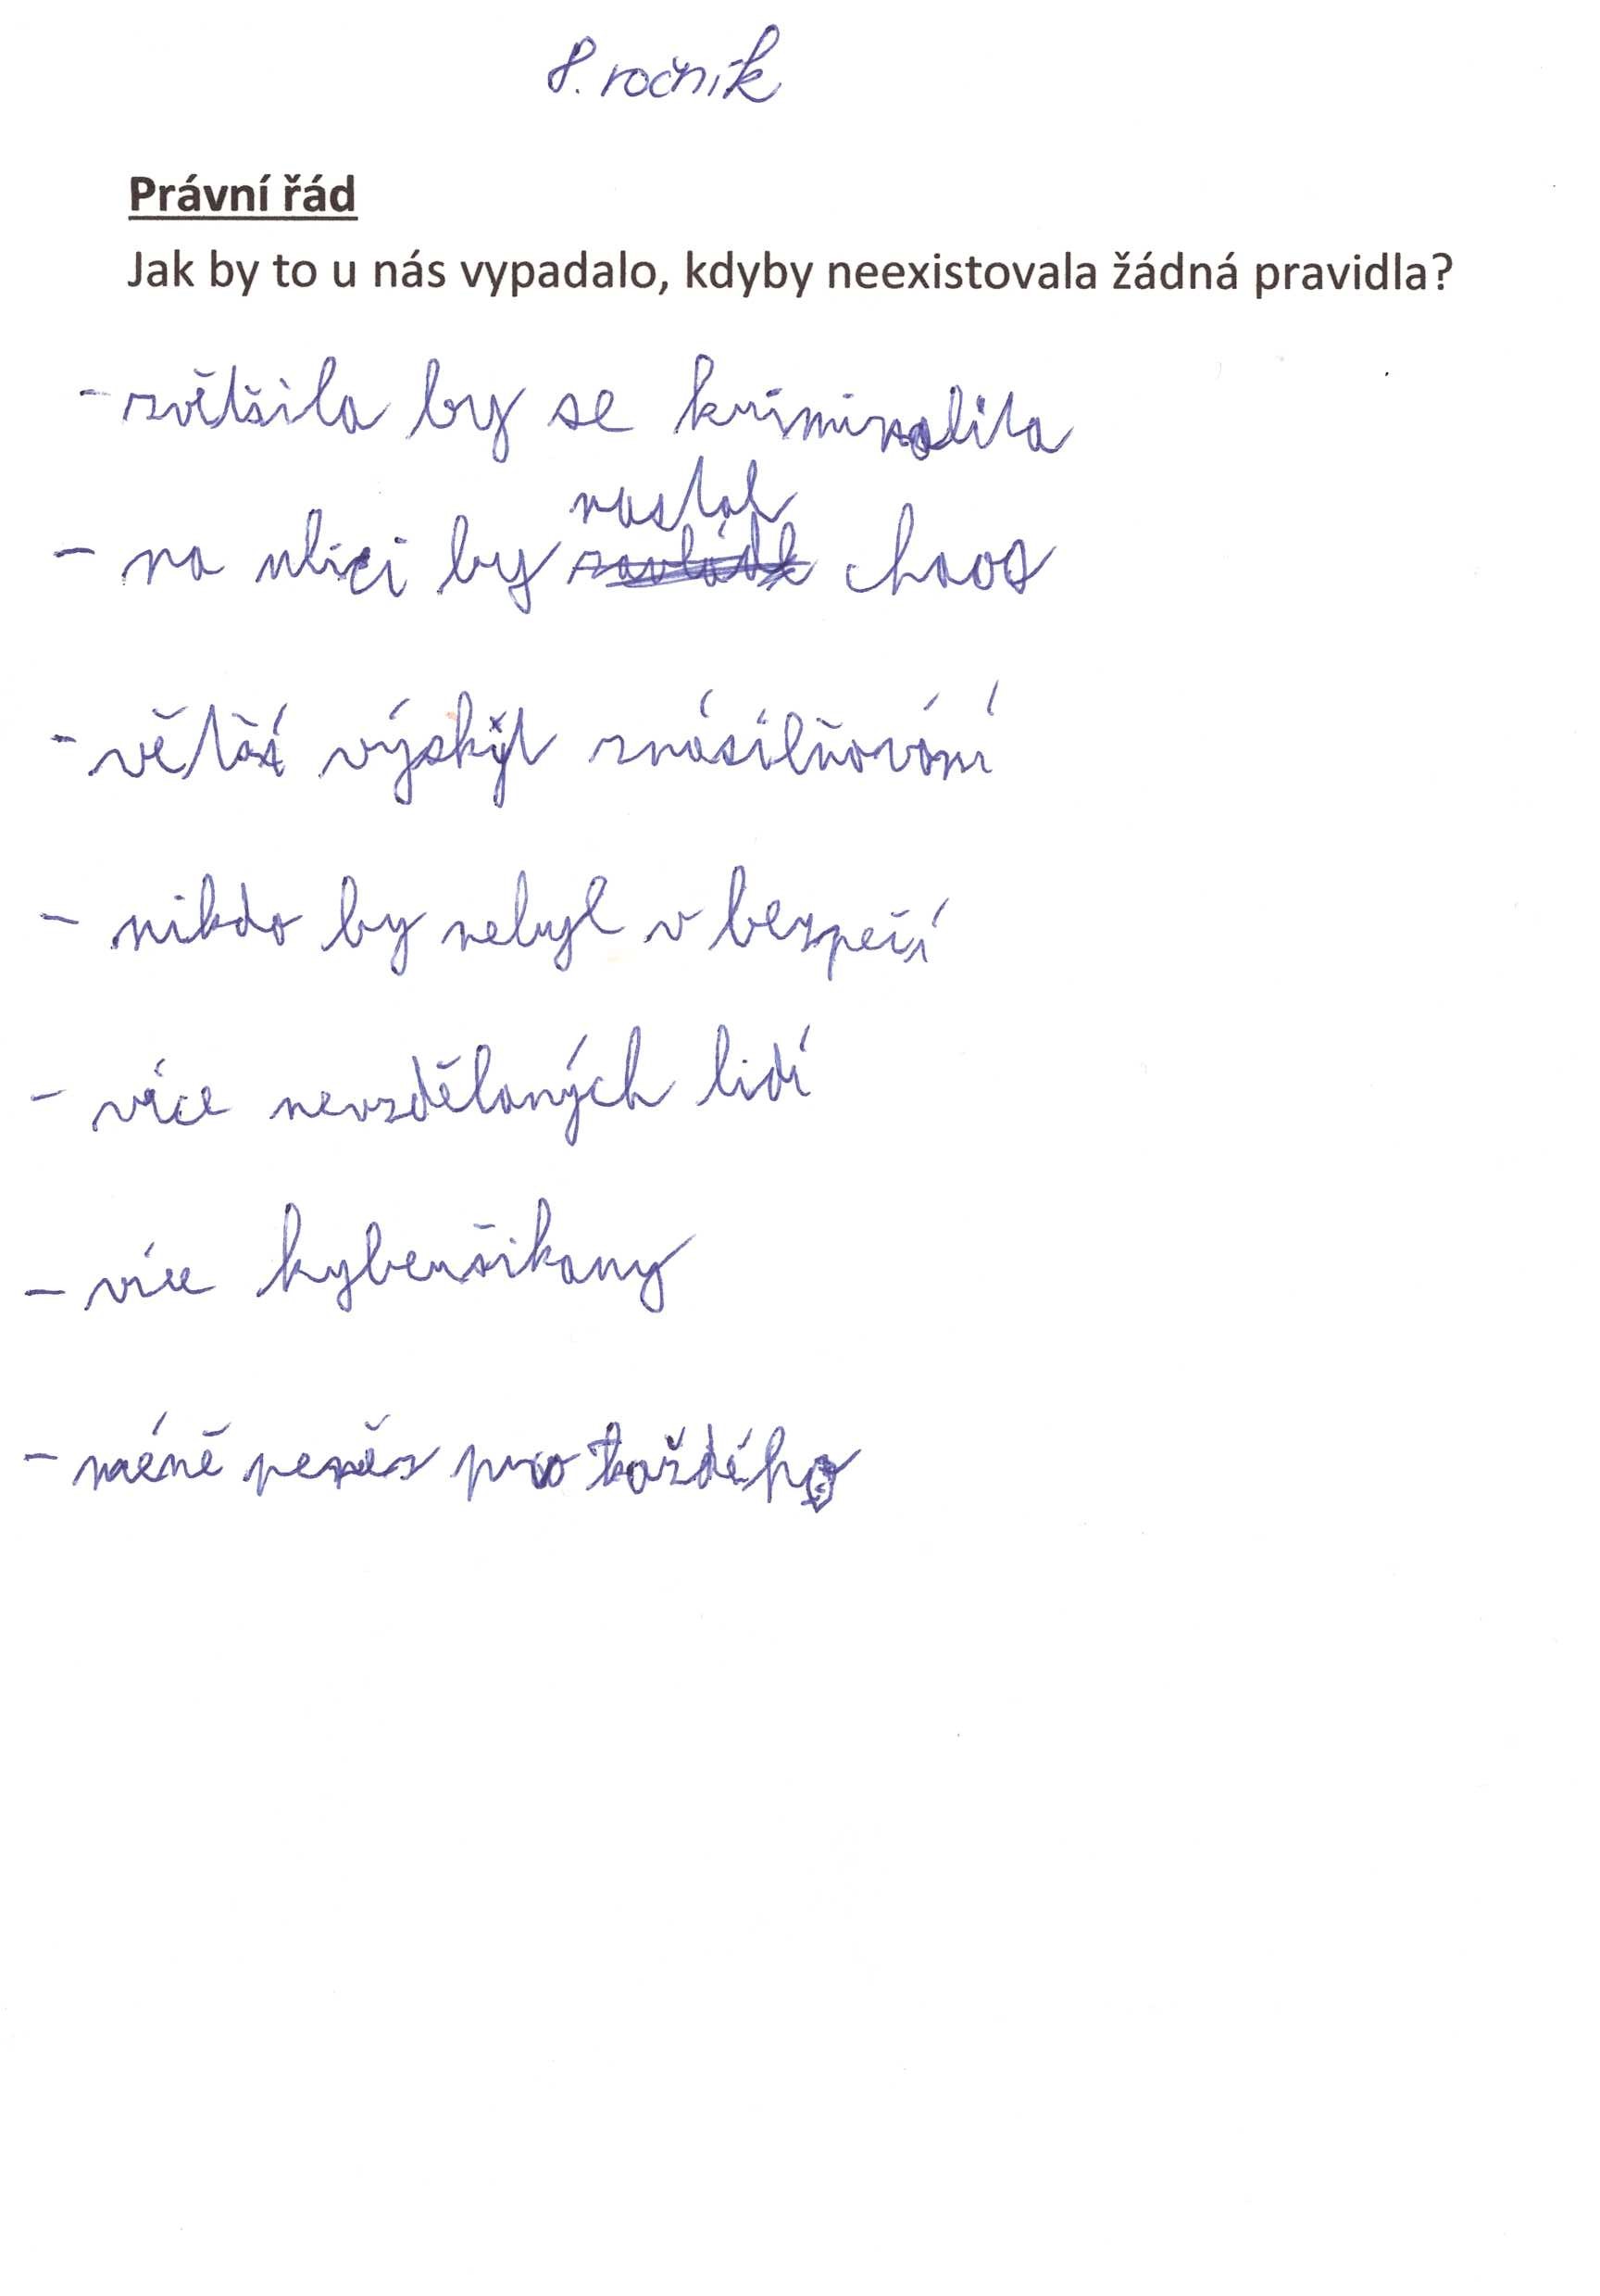 8. ročník
Právní řád
Jak by to u nás vypadalo, kdyby neexistovala žádná pravidla?
- zvětšila by se kriminalita
nastal
- na ulici by zavládl chaos
- větší výskyt znásilňování
- nikdo by nebyl v bezpečí
- více nevzdělaných lidí
- více kyberšikany
- méně peněz pro každého